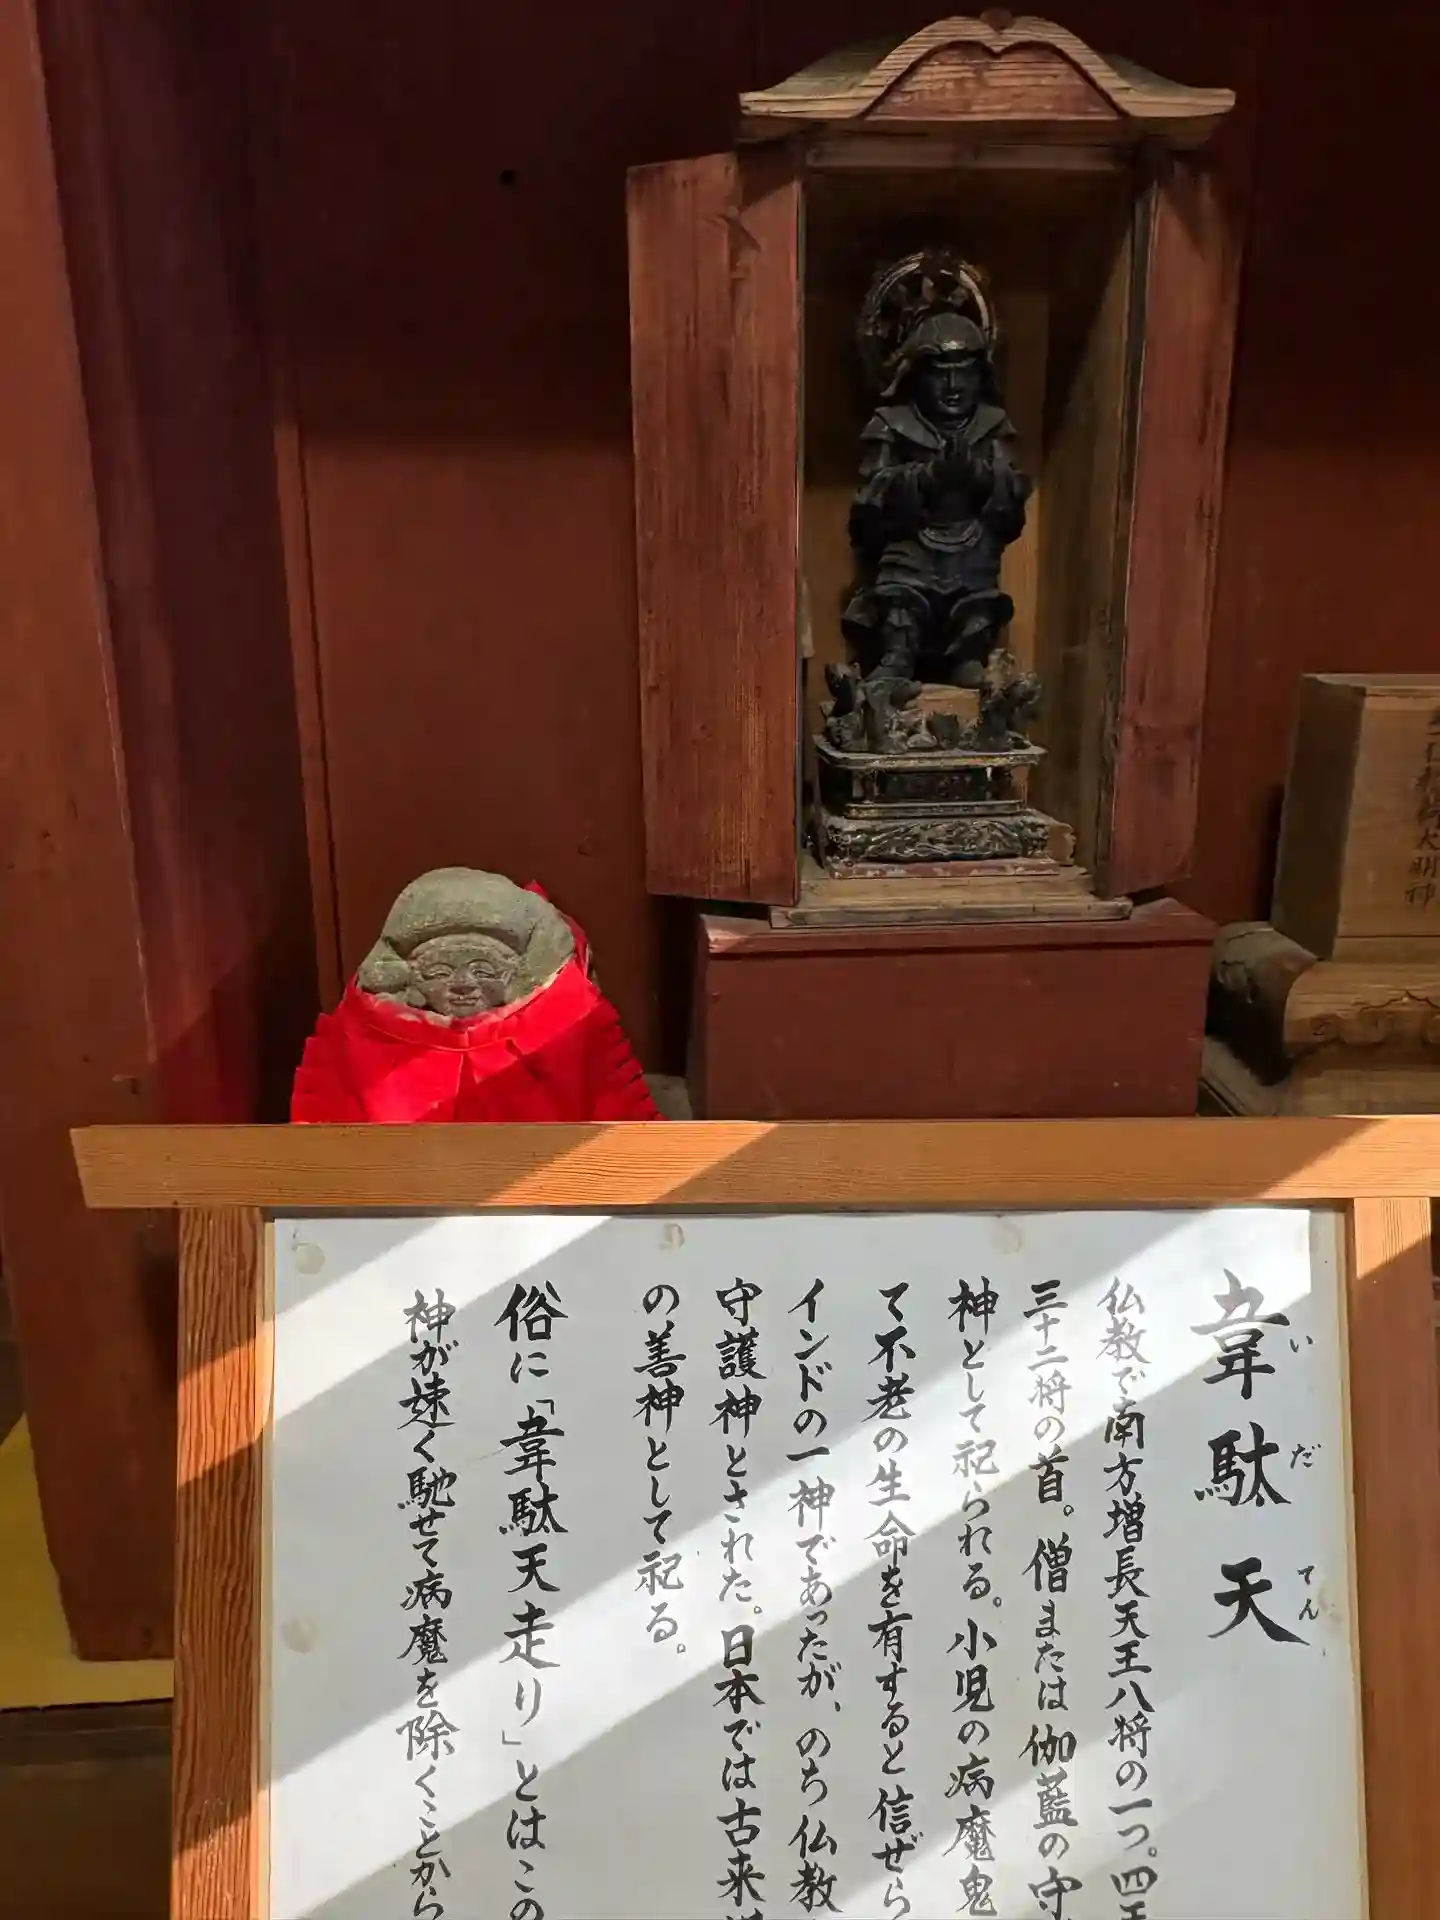 韋駄天
いだてん
仏教で南方増長天王八将の一つ。四天
三十二将の首。僧または伽藍の守
神として祀られる。小児の病魔鬼
て不老の生命を有すると信ぜら
インドの一神であったが、のち仏教
守護神とされた。日本では古来
の善神として祀る。
俗に「韋駄天走り」とはこの
神が速く馳せて病魔を除くことから
大明神